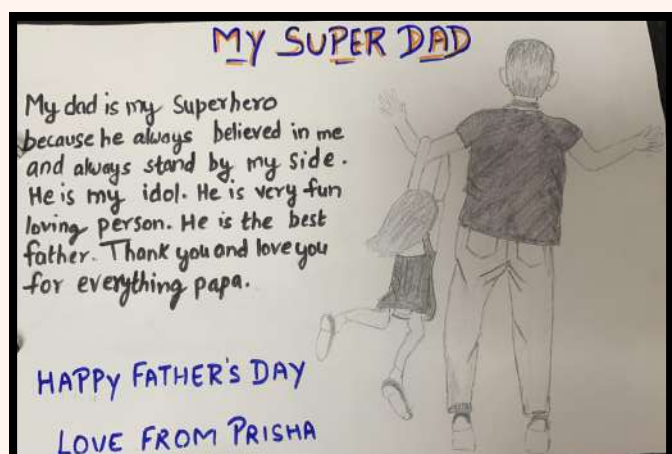 MY SUPER DAD
My dad is my Superhero
because he always believed in me
and always stand by my side.
He is my idol. He is very fun
loving person. He is the best
father. Thank you and love you
for everything papa.
HAPPY FATHER'S DAY
LOVE FROM PRISHA